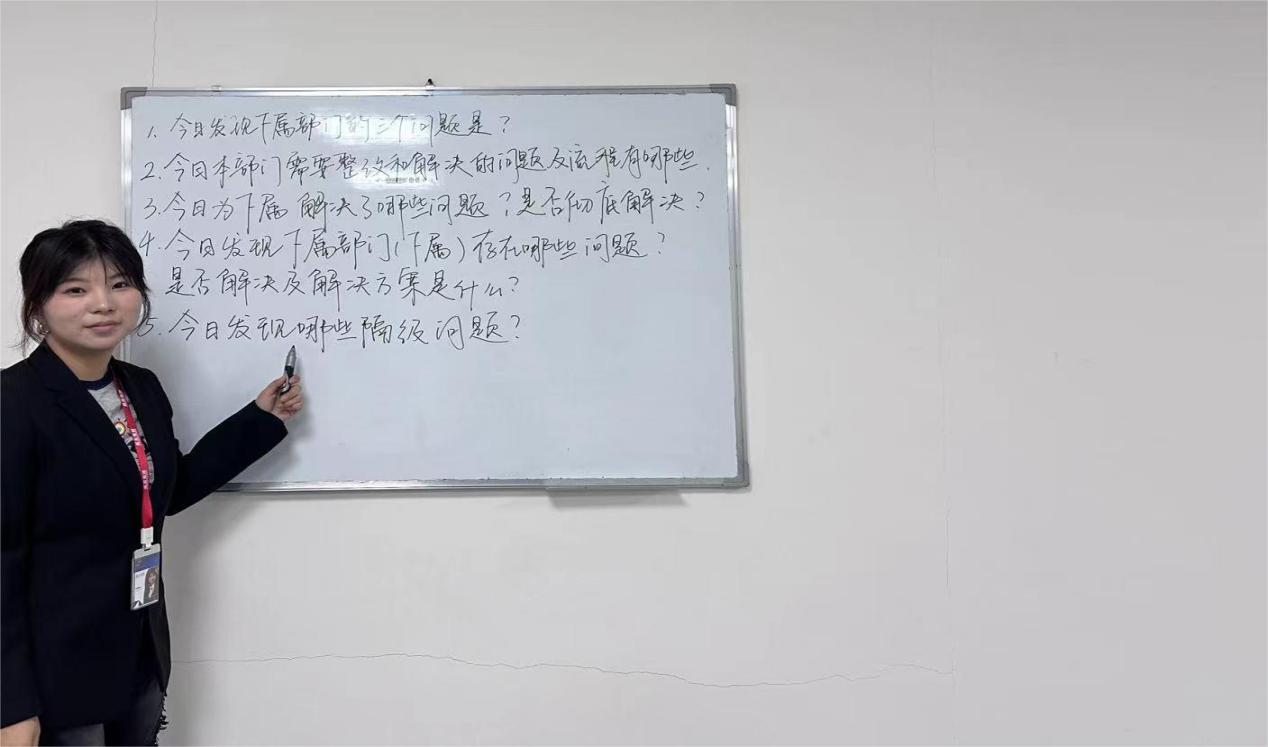 1. 今日发现下属部门的三个问题是?
2. 今日本部门需要整改和解决的问题及流程有哪些.
3. 今日为下属解决了哪些问题?是否彻底解决?
4. 今日发现下属部门(下属)存在哪些问题?
是否解决及解决方案是什么?
5. 今日发现哪些隔级问题?